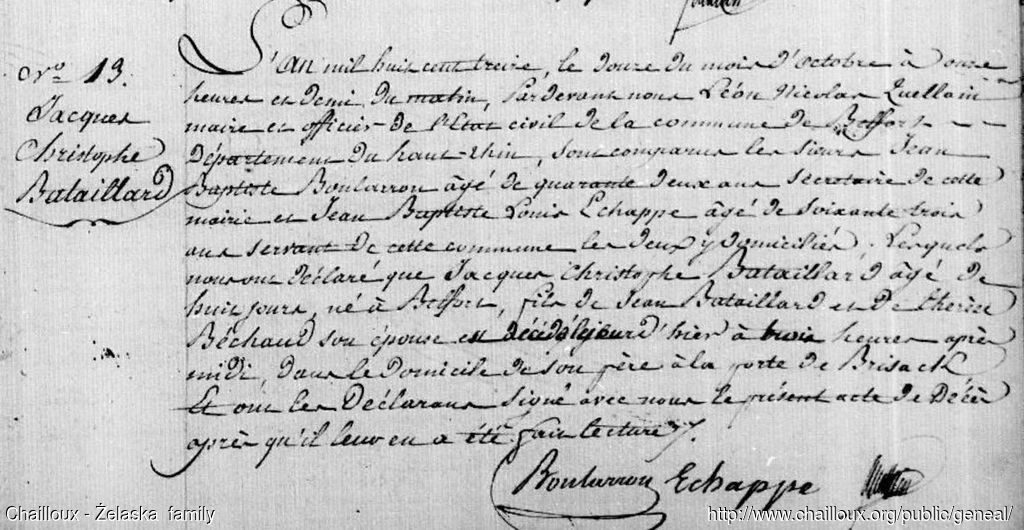 Nro 13.
Jacques
Christophe
Bataillard
L'An mil huit cent treize, le douze du mois d'octobre à onze
heures et demi du matin, Pardevant nous Léon Nicolas Quellain
maire et officier de l'Etat civil de la commune de Belfort
Département du haut-rhin, sont comparus les sieurs Jean
Baptiste Boularron âgé de quarante deux ans secretaire de cette
mairie et Jean Baptiste Louis Echappe âgé de soixante trois
ans servant de cette commune les deux y domiciliés. Lesquels
nous ont déclaré que Jacques Christophe Bataillard âgé de
huit jours, né à Belfort, fils de Jean Bataillard et de therèse
Béchaud son épouse est décédé le jour d'hier à trois heures après
midi, dans le domicile de son père à la porte de Brisach
Et ont les Déclarans signé avec nous le présent acte de Décès
après qu'il leur en a été fait lecture.
Boularron Echappe
Chailloux - Żelaska family
http://www.chailloux.org/public/geneal/